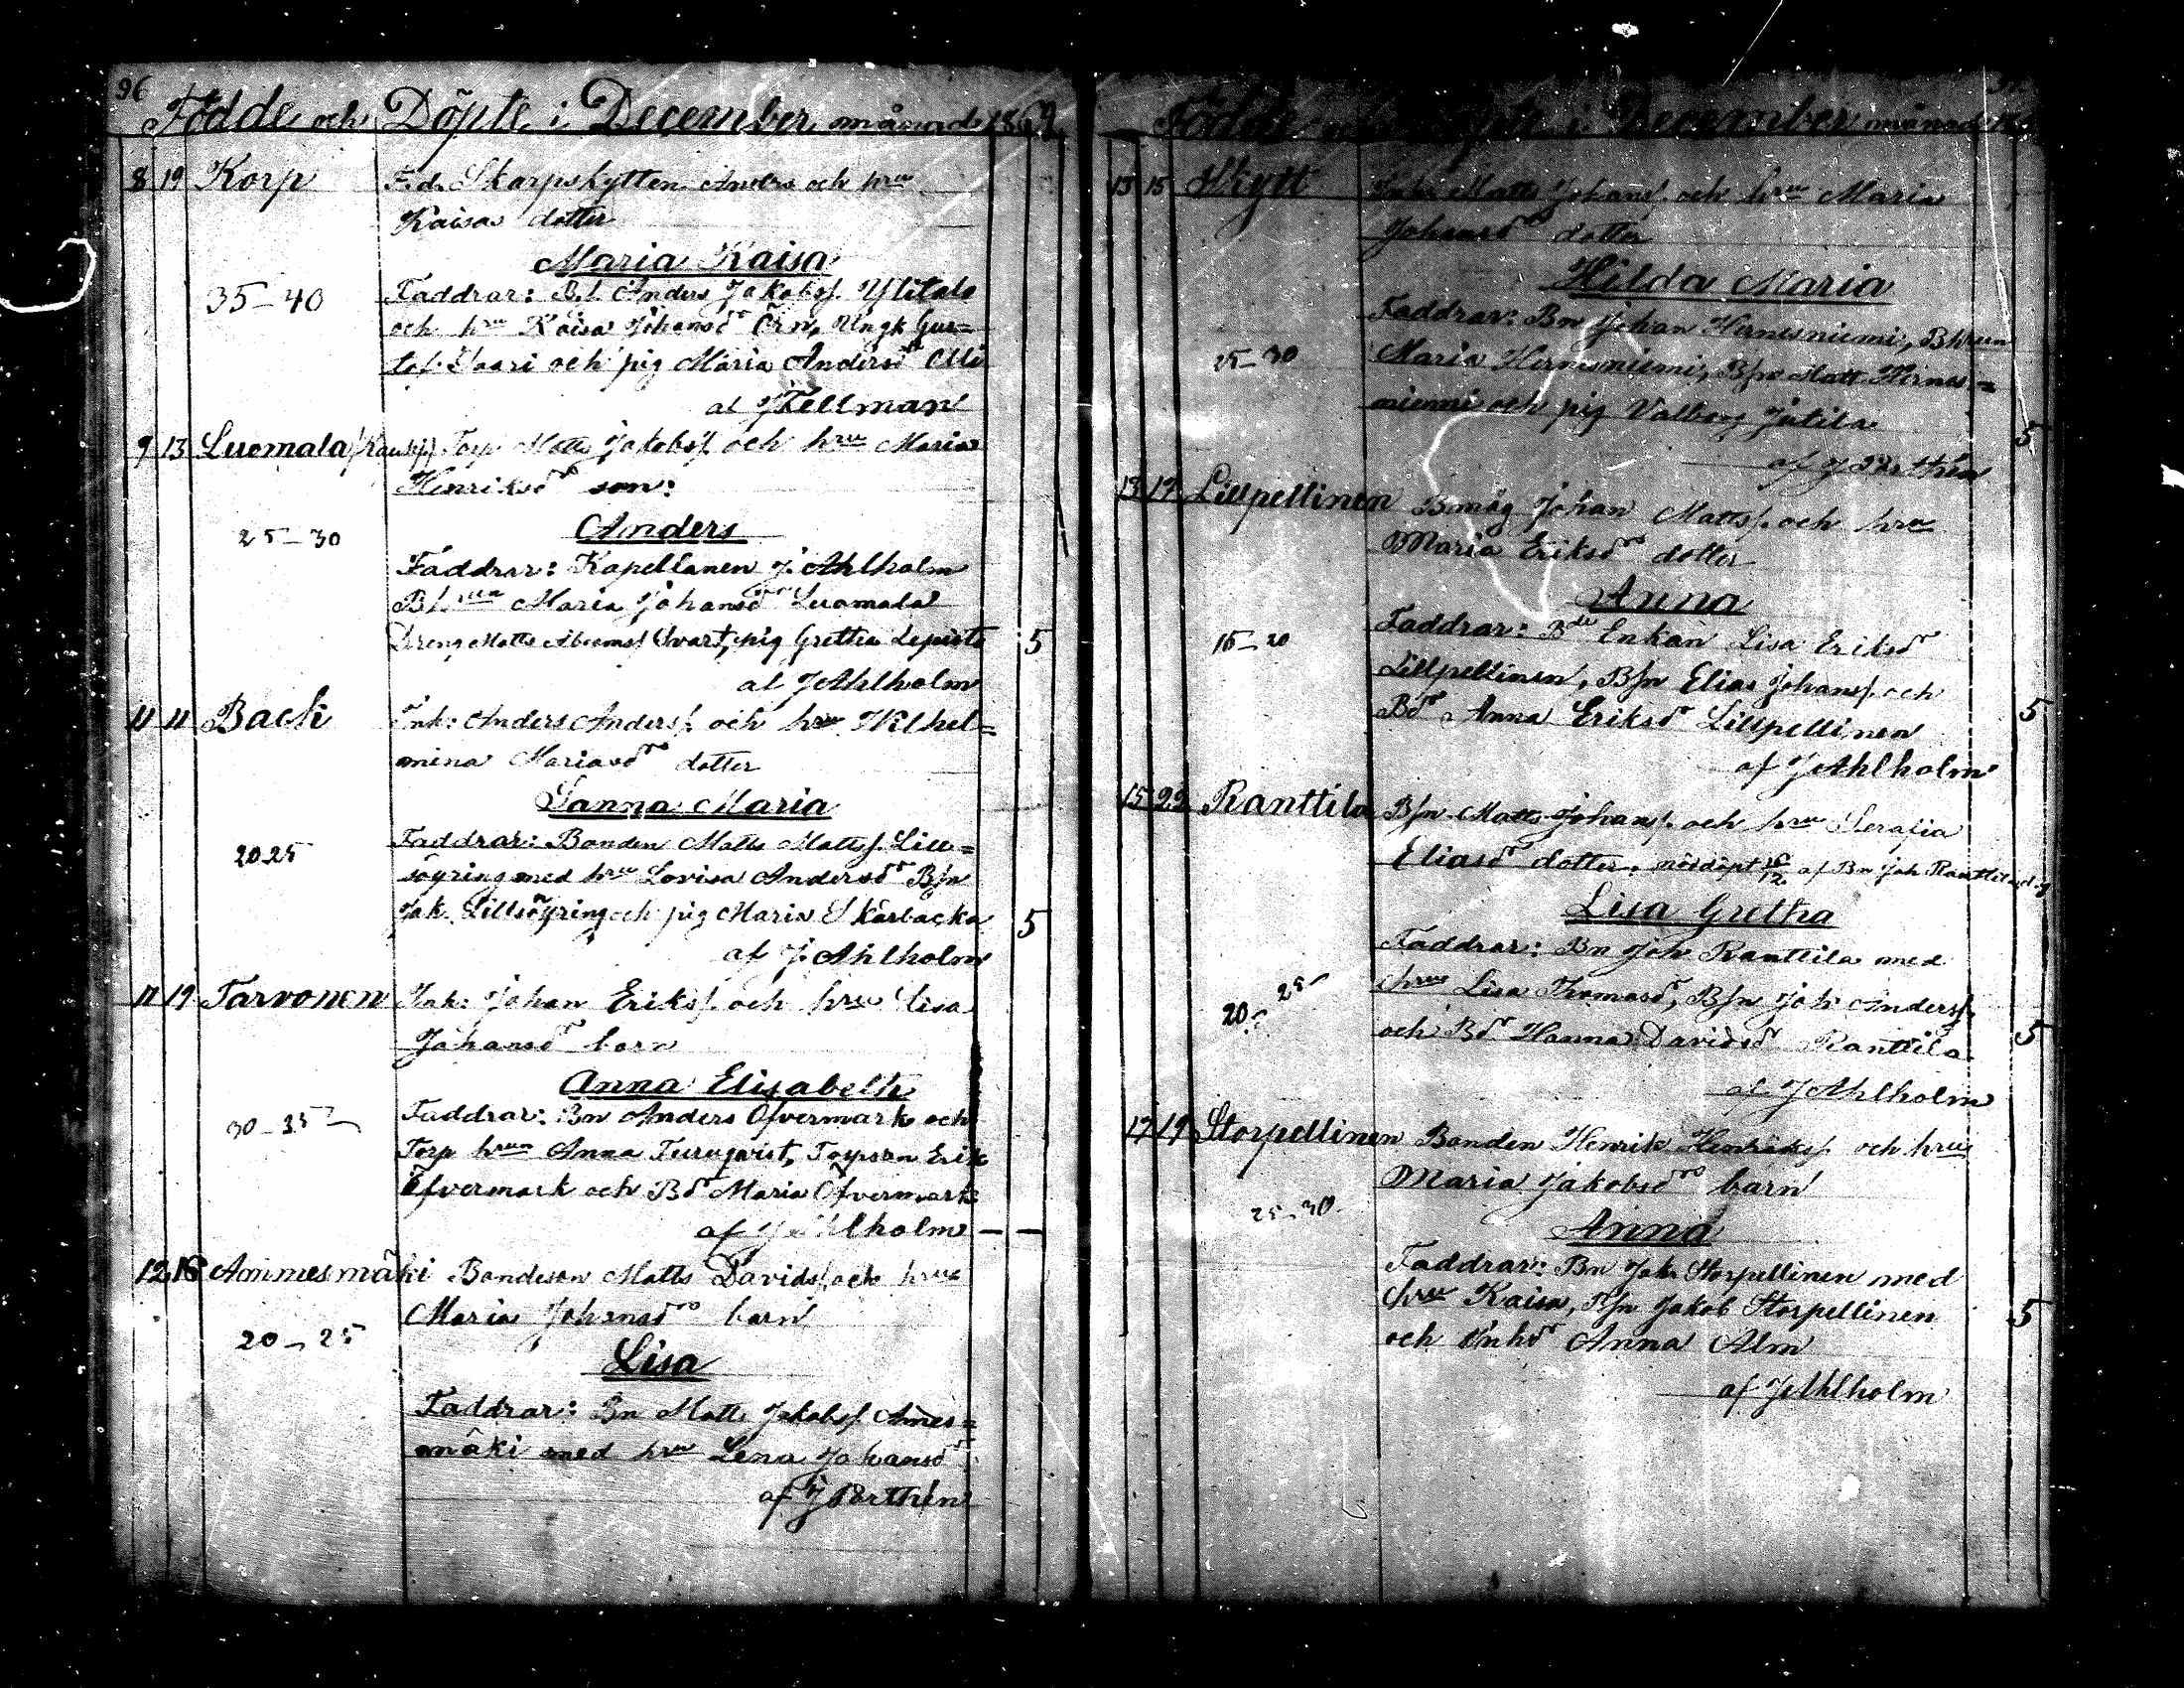 96
Födde och Döpte i December månad 1869
8 19 Korp F.d. Skarpskytten Anders och hru
Kaisas dotter
Maria Kaisa
35–40
Faddrar: B.s. Anders Jakobs. Ylitalo
och hru Kaisa Johansdr Örn, Yngk Gus=
taf Saari och pig Maria Andersdr Olli
af Hellman
9 13 Luomala Torp Matts Jakobs. och hru Maria
Henriksdrs son:
25–30
Anders
Faddrar: Kapellanen J. Ahlholm
Bhrun Maria Johansdr Luomala
Dreng Matts Abrams. Svart, pig Gretha Lepistö
5
af J Ahlholm
11 11 Back Inh: Anders Anders. och hru Wilhel=
mina Mariasdrs dotter
Sanna Maria
20 25
Faddrar: Bonden Matts Matts. Lill=
söyring med hru Lovisa Andersdr Bsn
Jak. Lillsöyring och pig Maria Skärbacka
5
af J. Ahlholm
11 19 Tarvonen Inh: Johan Eriks. och hru Lisa
Johansdrs barn
Anna Elisabeth
30–35
Faddrar: Bn Anders Öfvermark och
Torp hrun Anna Turnqvist, Torpsson Erik
Öfvermark och Bdr Maria Öfvermark
af J Ahlholm
12 18 Ammesmäki Bondeson Matts Davids. och hrus
Maria Johansdrs barn
20–25
Lisa
Faddrar: Bn Matts Jakobs. Ames=
mäki med hru Lena Johansdr
af J Porthén
Födde och Döpte i December månad
13 15 Skytt Inh: Matts Johans. och hru Maria
Johansdrs dotter
Hilda Maria
Faddrar: Bn Johan Hernesniemi, Bhrun
25–30
Maria Hernesniemi, Bsn Matt Hernes=
niemi och pig Valborg Jutila
5
af J Porthén
13 17 Lillpellinen Bmåg Johan Matts. och hru
Maria Eriksdrs dotter
Anna
15–20
Faddrar: Bde Enkan Lisa Eriksdr
Lillpellinen, Bsn Elias Johans. och
Bdr Anna Eriksdr Lillpellinen
5
af J Ahlholm
15 22 Ranttila Bsn Matts Johans. och hru Serafia
Eliasdrs dotter, nöddöpt af Bn Joh Ranttila
Lisa Gretha
Faddrar: Bn Joh Ranttila med
20–25
hru Lisa Thomasdr, Bsn Joh Anders.
och Bdr Hanna Davidsdr Ranttila
5
af J Ahlholm
17 19 Storpellinen Bonden Henrik Henriks. och hru
Maria Jakobsdrs barn
25–30
Anna
Faddrar: Bn Jak Storpellinen med
hru Kaisa, Bsn Jakob Storpellinen
5
och Inhdr Anna Alm
af J Ahlholm